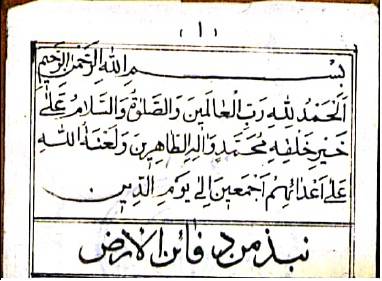 (١)
بِسْمِ اللهِ الرَّحْمٰنِ الرَّحِيمِ
اَلْحَمْدُ لِلّٰهِ رَبِّ الْعَالَمِينَ وَالصَّلٰوةُ وَالسَّلَامُ عَلٰى
خَيْرِ خَلْقِهِ مُحَمَّدٍ وَاٰلِهِ الطَّاهِرِينَ وَلَعْنَةُ اللهِ
عَلٰى اَعْدَائِهِمْ اَجْمَعِينَ اِلٰى يَوْمِ الدِّينِ
نبذ من دفائن الارض